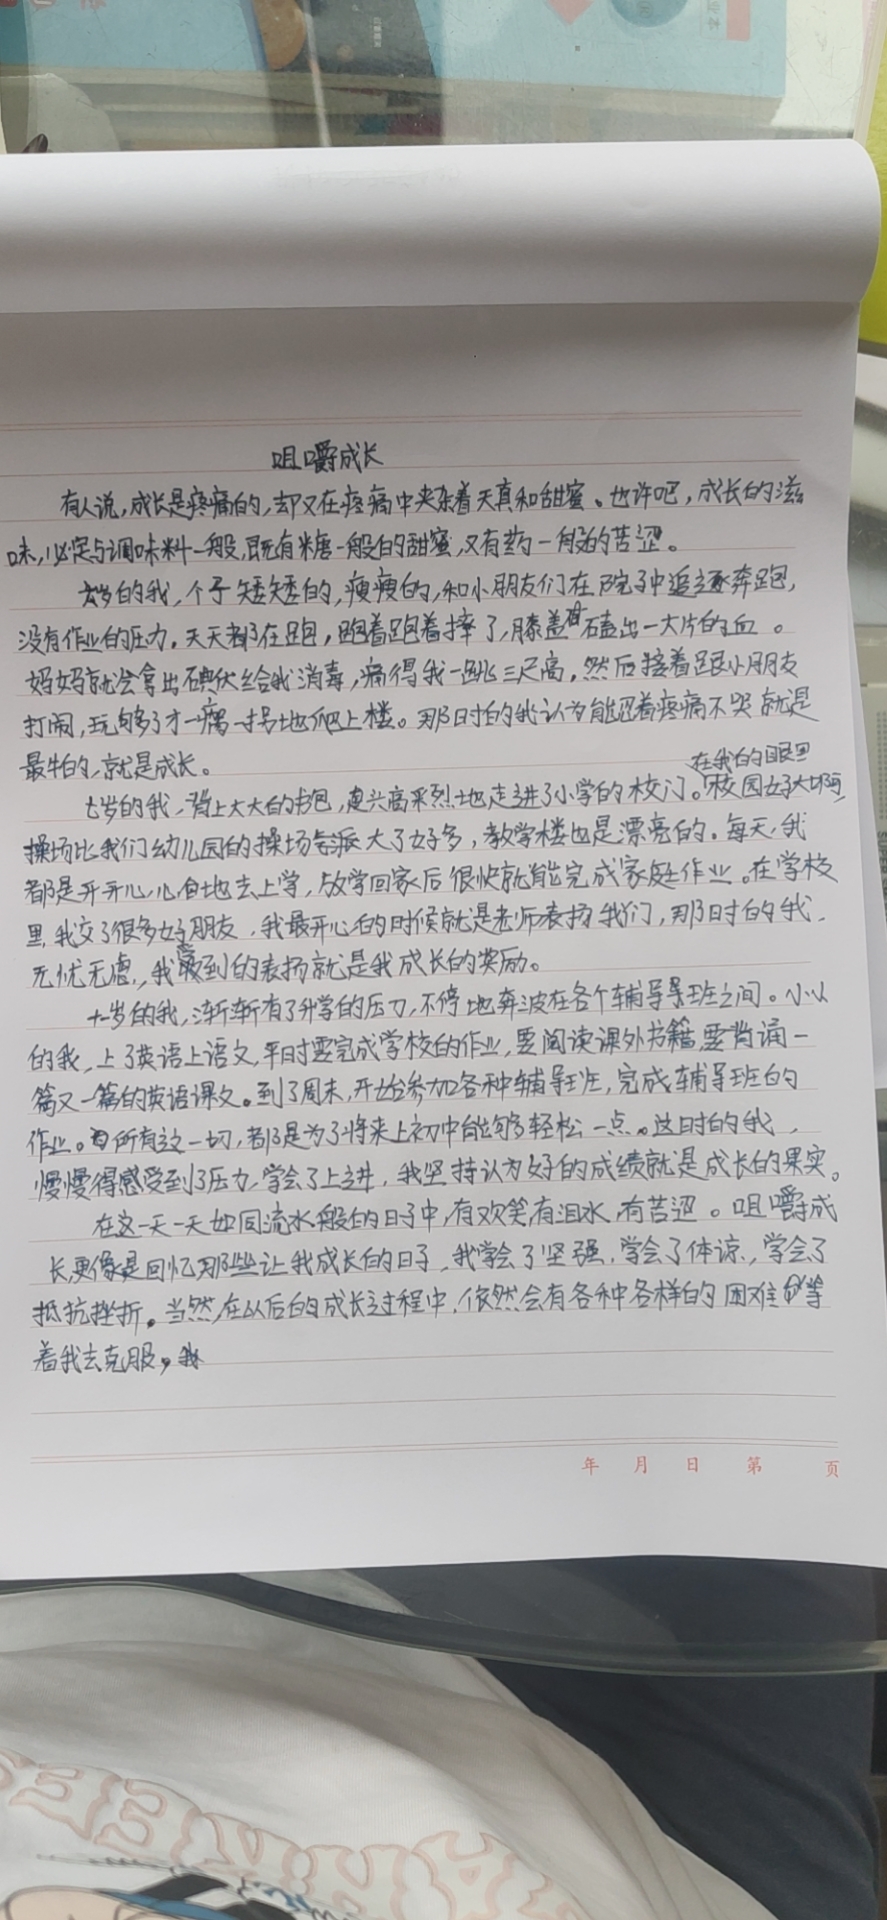 咀嚼成长
有人说,成长是疼痛的,却又在疼痛中夹杂着天真和甜蜜。也许吧,成长的滋
味,必定与调味料一般,既有糖一般的甜蜜,又有药一般的苦涩。
六岁的我,个子矮矮的,瘦瘦的,和小朋友们在院子中追逐奔跑,
没有作业的压力,天天都在跑,跑着跑着摔了,膝盖磕出一大片的血。
妈妈就会拿出碘伏给我消毒,痛得我一跳三尺高,然后接着跟小朋友
打闹,玩够了才一瘸一拐地爬上楼。那时的我认为能忍着疼痛不哭就是
最牛的,就是成长。
在我的眼里
七岁的我,背上大大的书包,兴高采烈地走进了小学的校门。校园好大啊,
操场比我们幼儿园的操场气派大了好多,教学楼也是漂亮的。每天,我
都是开开心心自地去上学,放学回家后很快就能完成家庭作业。在学校
里,我交了很多好朋友,我最开心的时候就是老师表扬我们,那时的我,
无忧无虑,我受到的表扬就是我成长的奖励。
十一岁的我,渐渐有了升学的压力,不停地奔波在各个辅导班之间。小小
的我,上了英语上语文,平时要完成学校的作业,要阅读课外书籍,要背诵一
篇又一篇的英语课文。到了周末,开始参加各种辅导班,完成辅导班的
作业。所有这一切,都是为了将来上初中能够轻松一点。这时的我,
慢慢得感受到了压力,学会了上进,我坚持认为好的成绩就是成长的果实。
在这一天一天如同流水般的日子中,有欢笑,有泪水,有苦涩。咀嚼成
长,更像是回忆那些让我成长的日子,我学会了坚强,学会了体谅,学会了
抵抗挫折。当然,在以后的成长过程中,依然会有各种各样的困难等
着我去克服,我
年 月 日 第 页